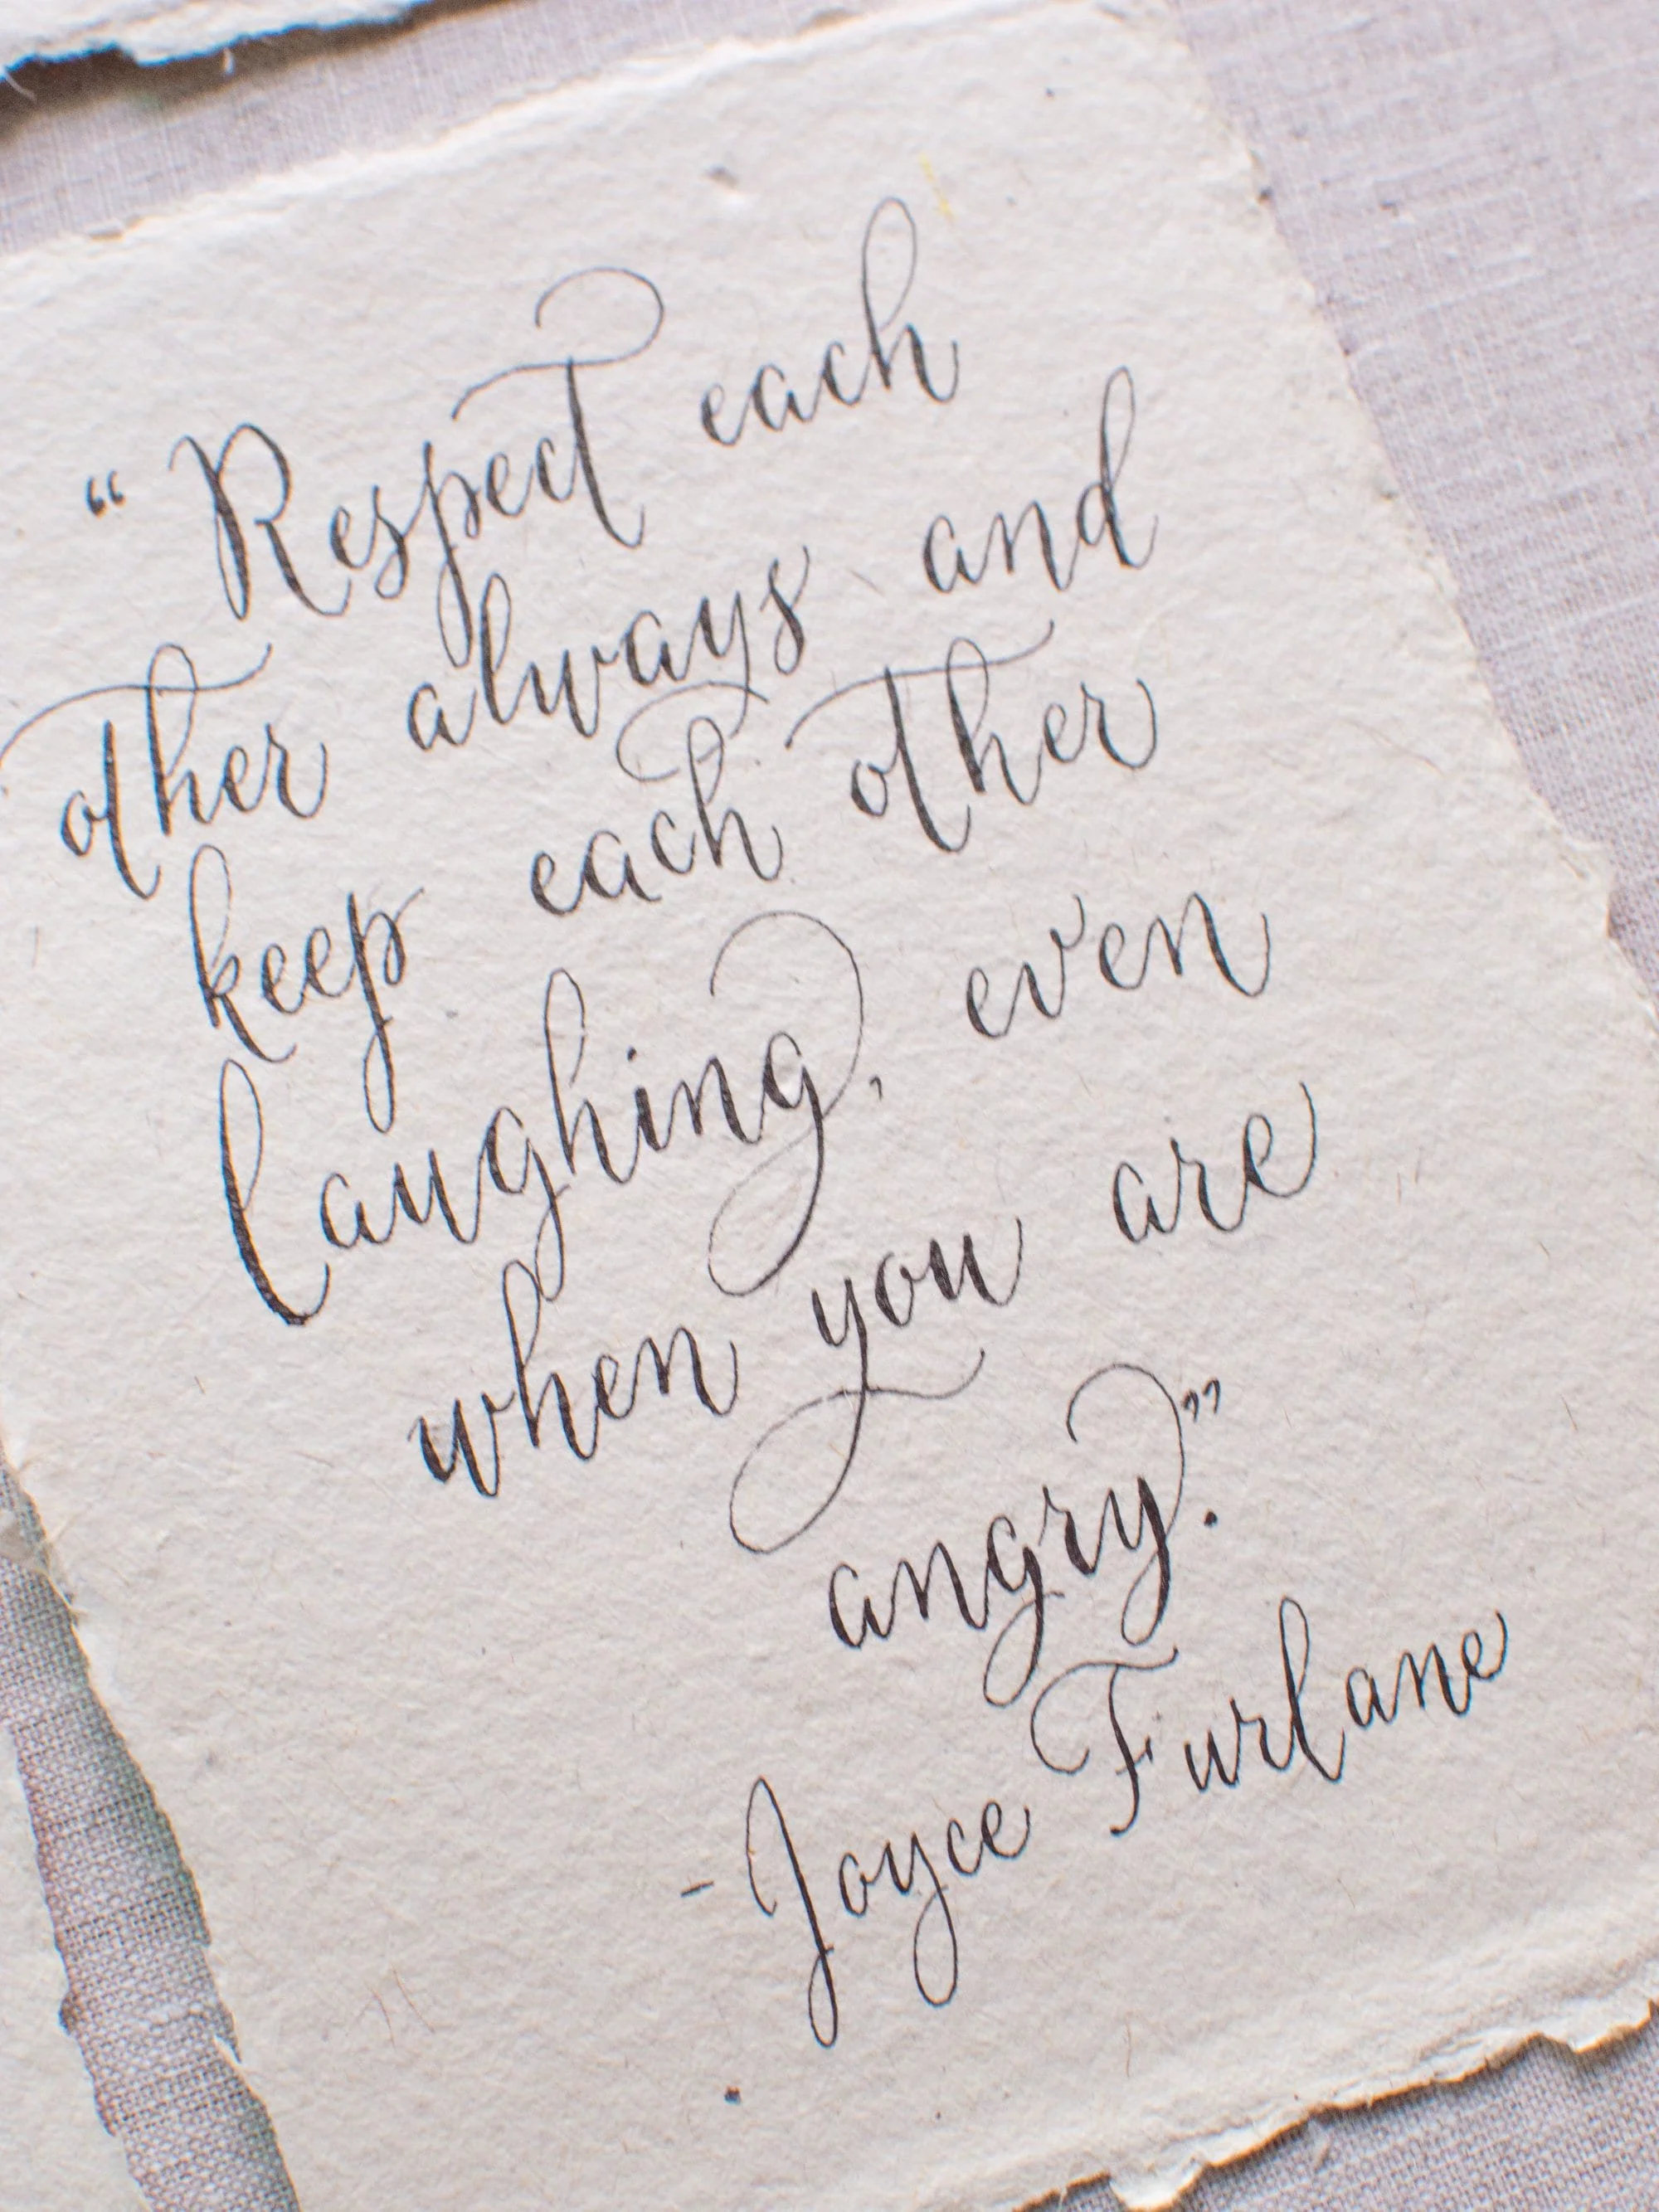 “Respect each
other always and
keep each other
laughing, even
when you are
angry.”
- Joyce Furlane